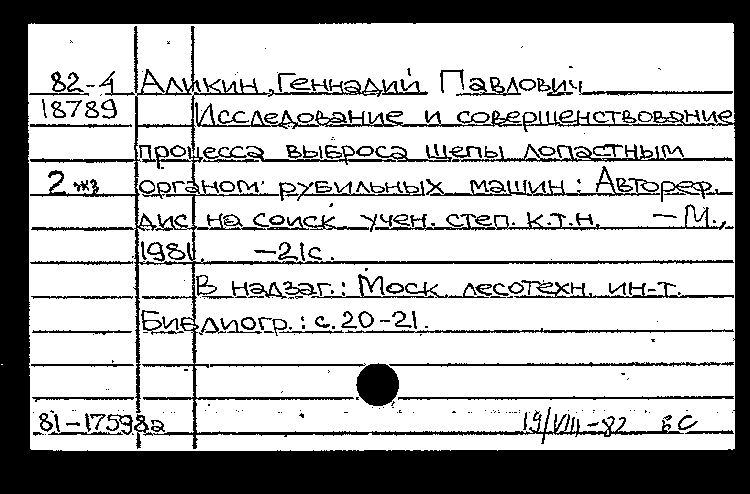 82-4 Аликин, Геннадий Павлович
18789 Исследование и совершенствование
процесса выброса щепы лопастным
2 экз органом рубильных машин: Автореф.
дис. на соиск. учен. степ. к.т.н. — М.,
1981. — 21с.
В надзаг.: Моск. лесотехн. ин-т.
Библиогр.: с. 20-21.
81-17598а 19/VIII-82 БС